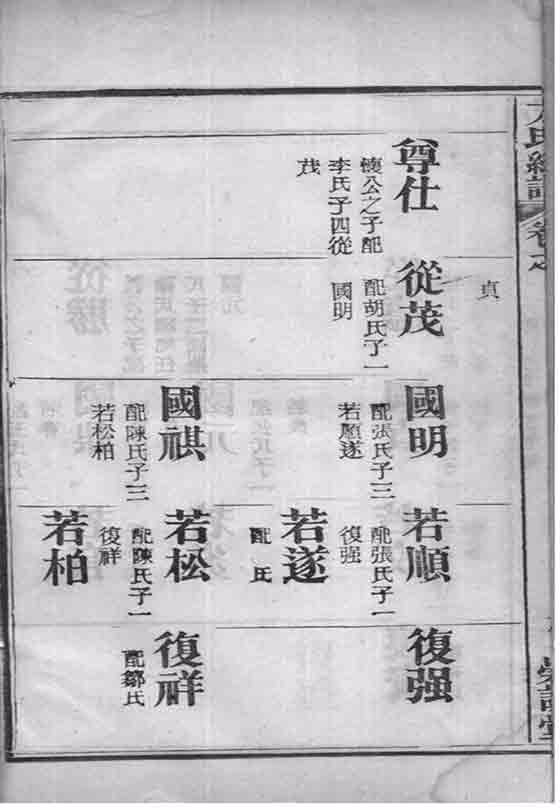 氏總譜
卷之
尊仕
公之子配
李氏子四從
茂
貞
從茂
配胡氏子一
國明
國明
配張氏子二
若順遂
國祺
配陳氏子二
若松柏
若順
配張氏子一
復强
若遂
配 氏
若松
配陳氏子一
復祥
若柏
復强
復祥
配鄒氏